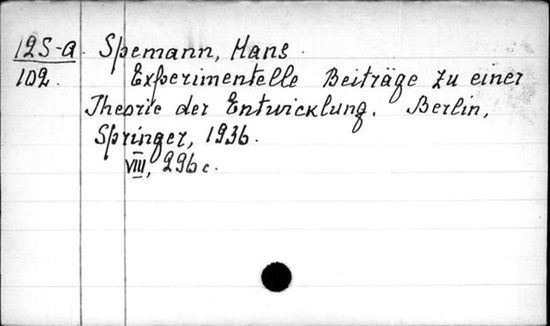 12S-a Spemann, Hans.
102. Experimentelle Beiträge zu einer
Theorie der Entwicklung. Berlin,
Springer, 1936.
VIII, 296 c.